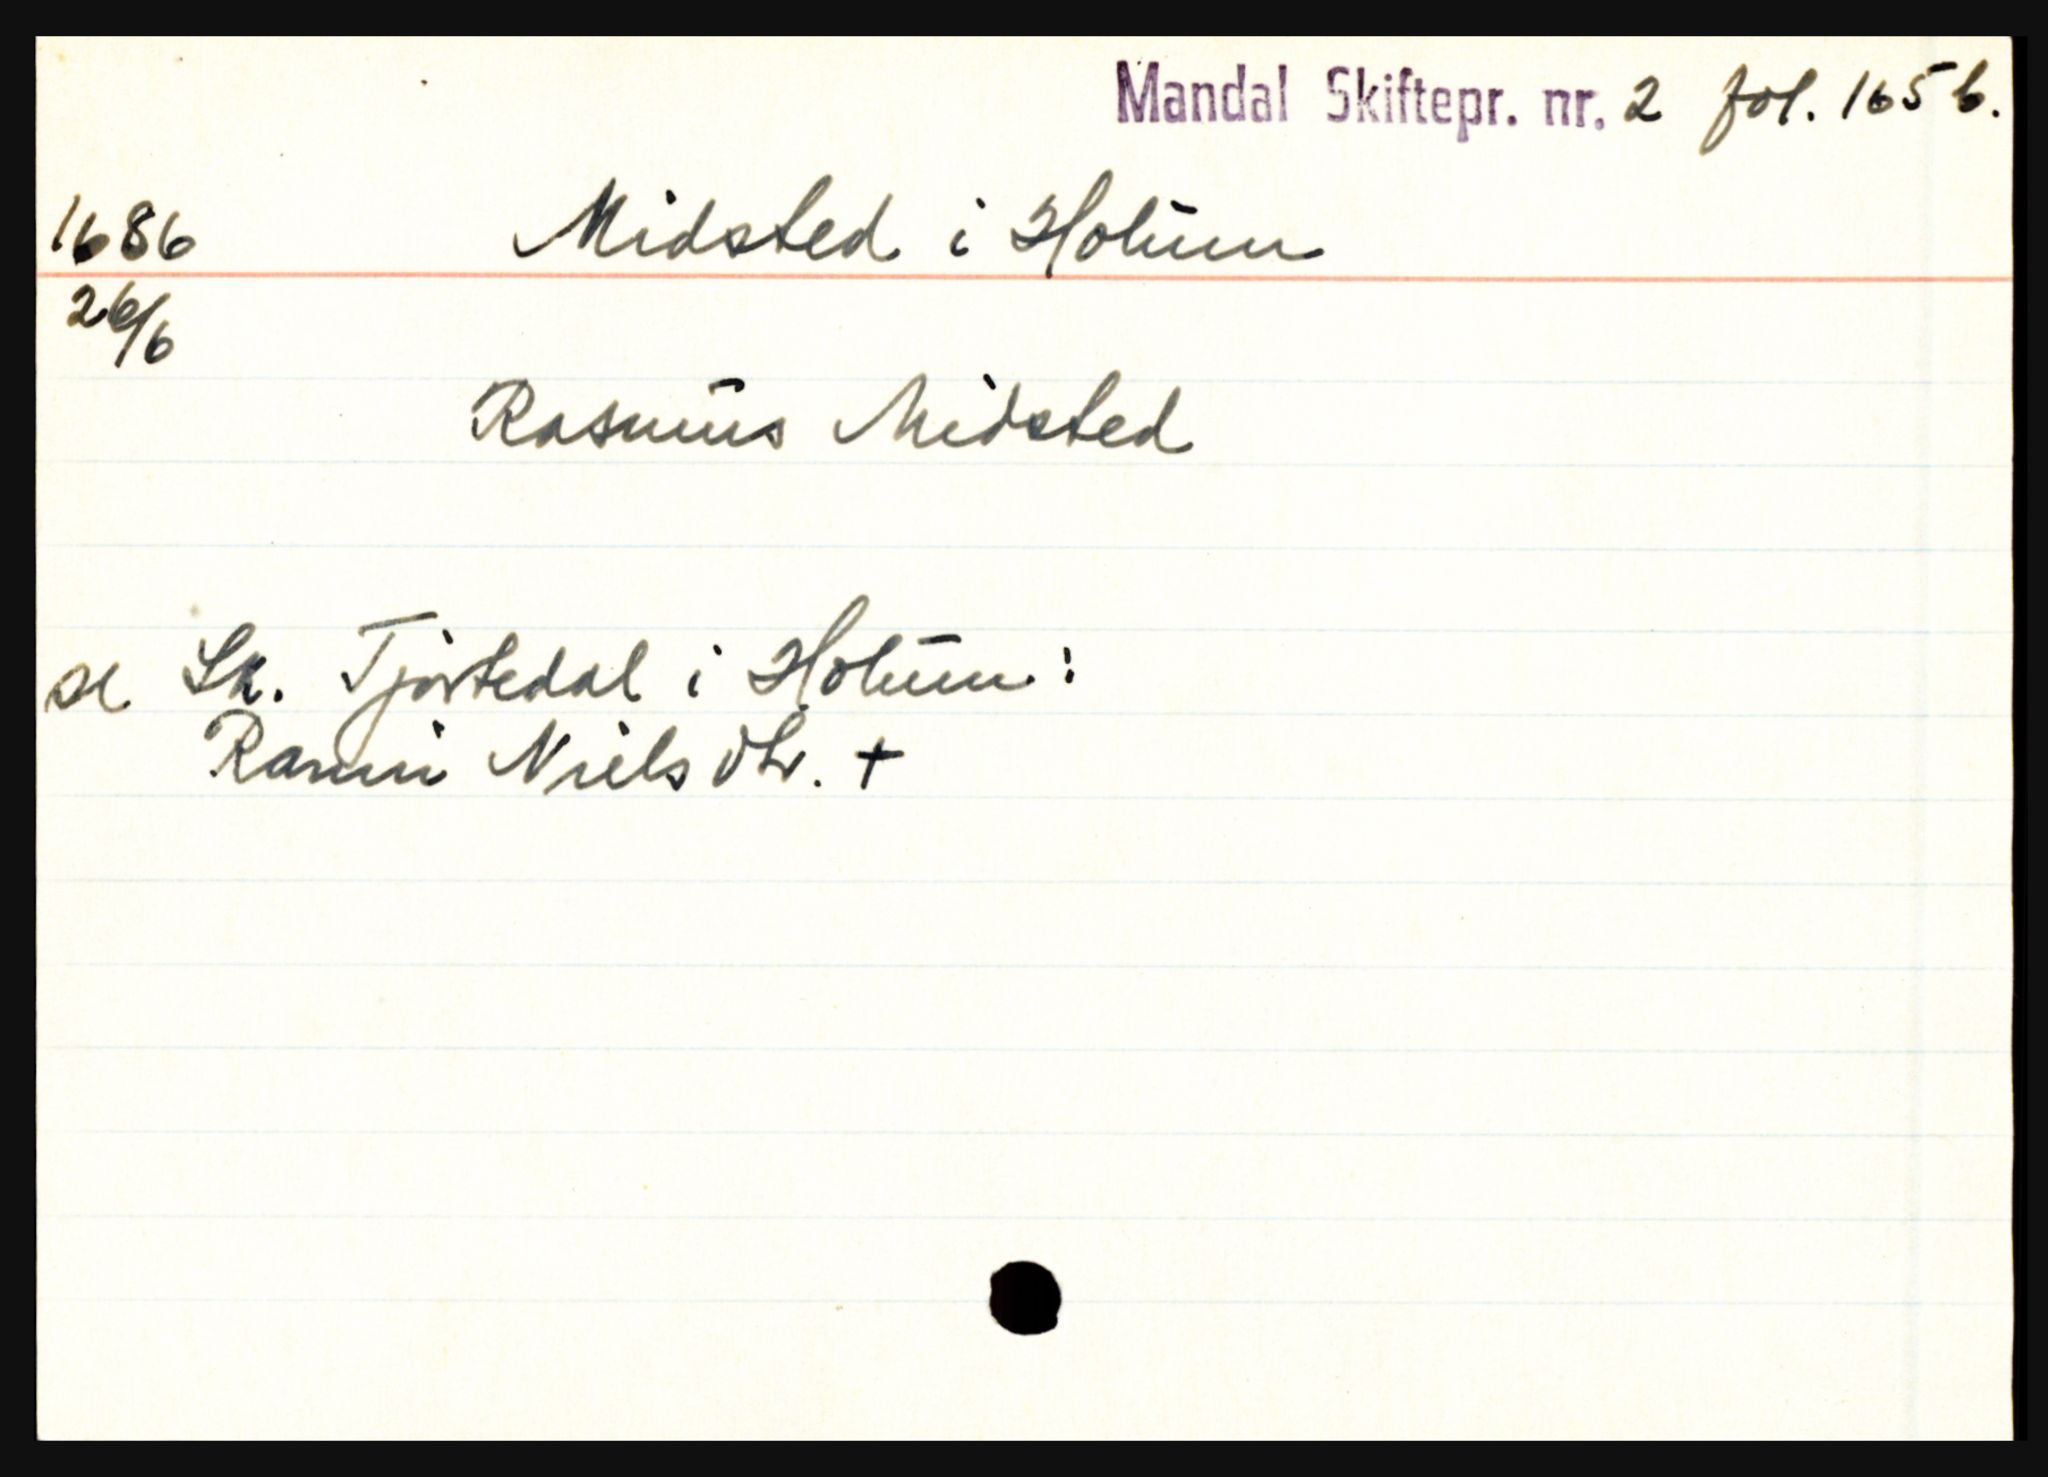 Mandal Skiftepr. nr. 2 fol. 165 b.
1686 Midsted i Holum
26/6
Rasmus Midsted
se Sk. Tjortedal i Holum:
Ranni Nielsdtr. +